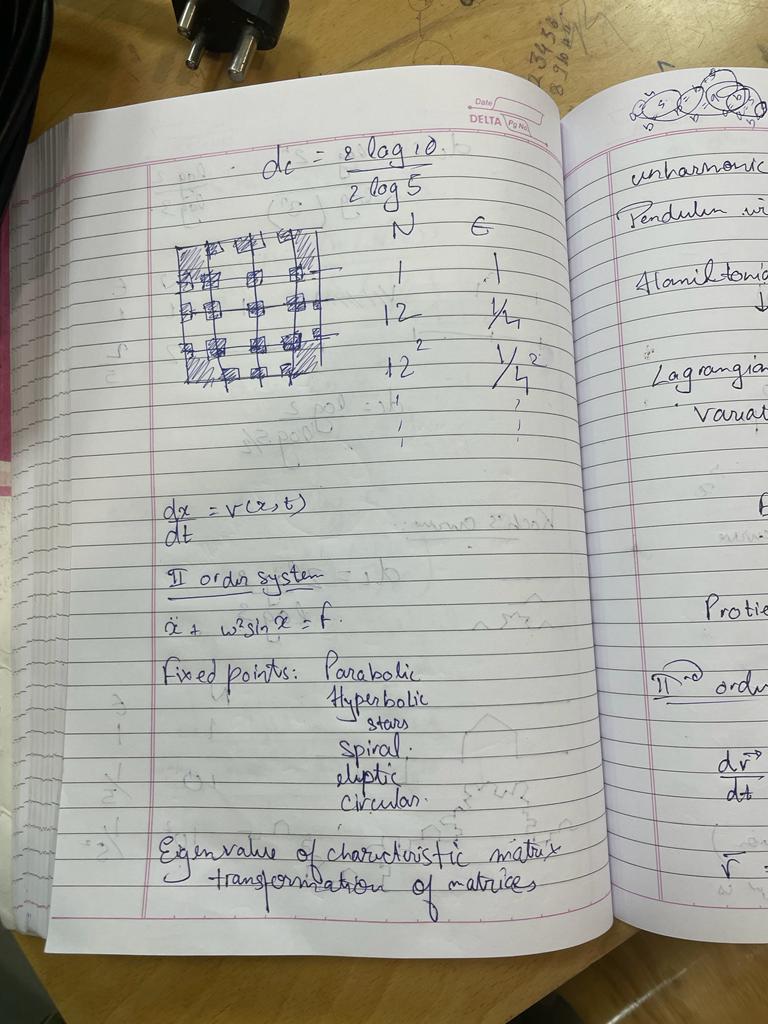 Date
DELTA Pg No.
dc = 2 log 10
2 log 5
N ϵ
1 1
12 1/4
12² 1/4²
dx = v(x,t)
dt
II order system
ẍ + ω²sin x = f.
Fixed points: Parabolic
Hyperbolic
stars
spiral.
eliptic
circular.
Eigenvalue of charecteristic matrix
transformation of matrices
unharmonic
Pendulum wi
Hamiltonia
↓
Lagrangian
variat
Protie
II nd order
dr→
dt
r =